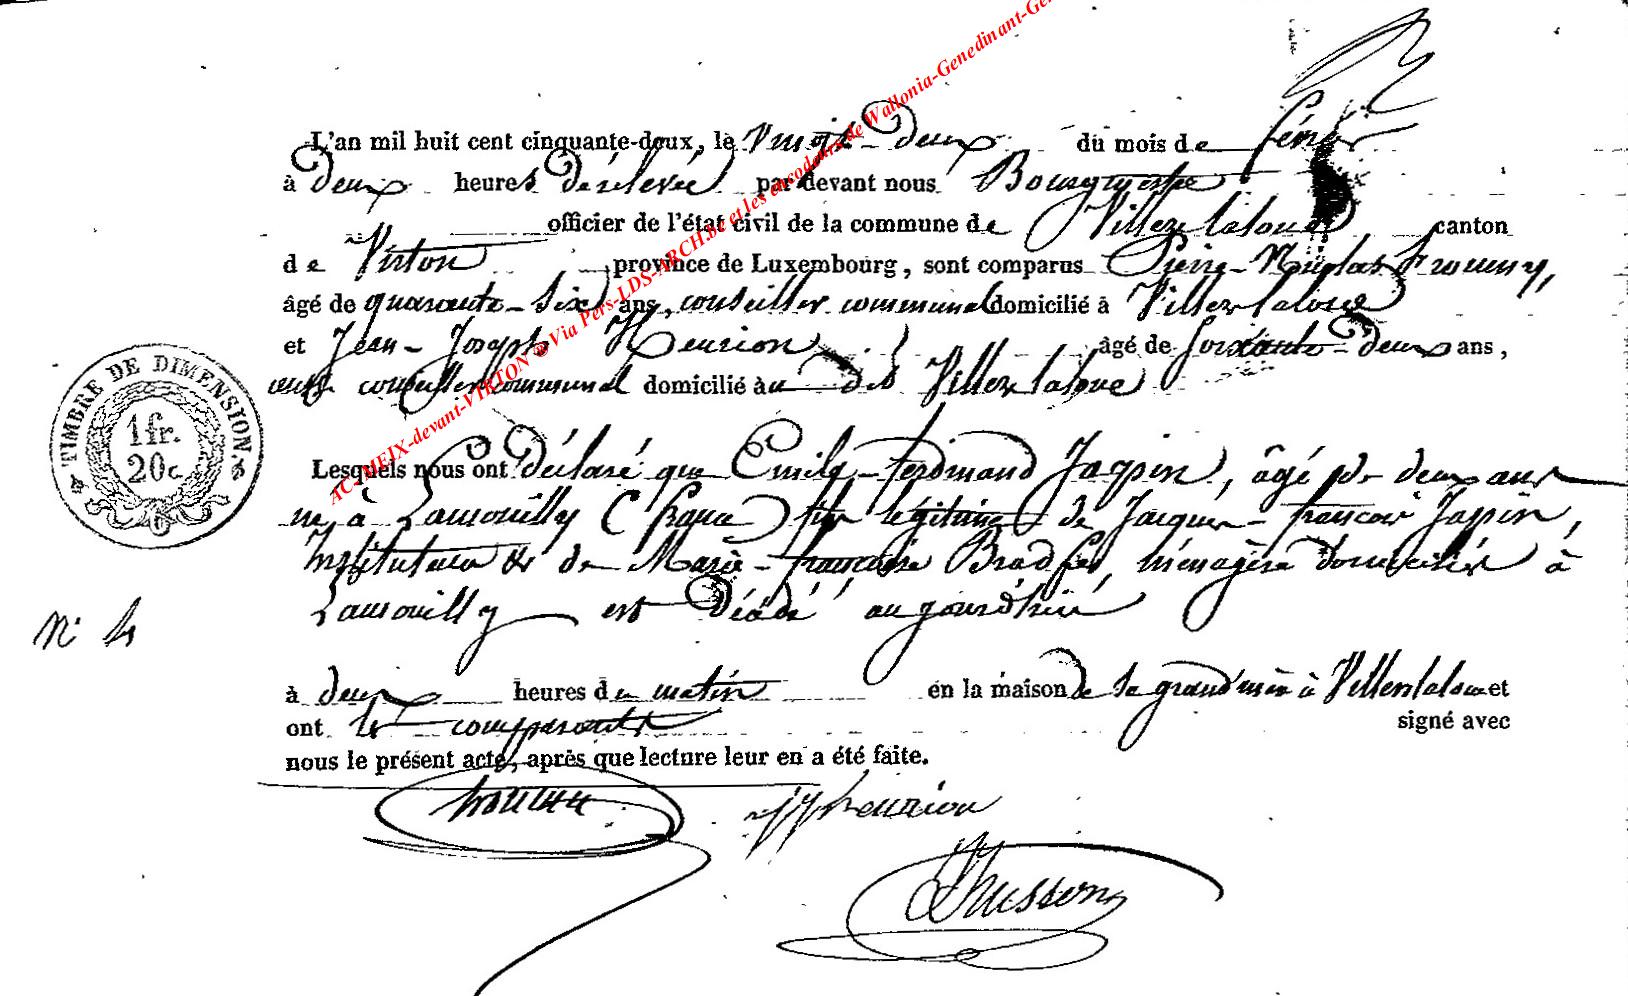 L'an mil huit cent cinquante-deux, le vingt-deux du mois de
à deux heures de rélevée par devant nous Bourgmestre
officier de l'état civil de la commune de Villerslaloue canton
de Virton province de Luxembourg, sont comparus Pierre-Nicolas
âgé de quarante-six ans, conseiller communal domicilié à Villerslaloue
et Jean-Joseph Henrion âgé de soixante-deux ans,
conseiller communal domicilié au dit Villerslaloue
TIMBRE DE DIMENSION.
1 fr.
20 c
Lesquels nous ont déclaré que Emile-ferdinand Jaspin, âgé de deux ans
né à Lamouilly (france) fils légitime de Jacques-françois Jaspin,
Instituteur & de Marie-françoise, ménagère domiciliés à
Lamouilly est décédé aujourd'hui
N° 4
à deux heures du matin en la maison de sa grand'mère à Villerslaloue et
ont les comparants signé avec
nous le présent acte, après que lecture leur en a été faite.
JJ henrion
Husson
AC-MEIX-devant-VIRTON ® Via Pers-LDS-ARCH.be et les encodeurs de Wallonia-Genedinant-Ge